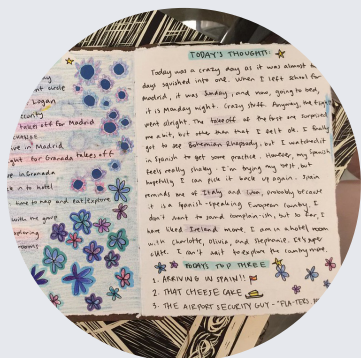 ny
nt circle
Logan
ecurity
takes off for Madrid
change
ve in Madrid
ght for Granada takes off
ve in Granada
k in to hotel
time to nap and eat/explore
with the group
xploring
rooms
TODAY'S THOUGHTS:
Today was a crazy day as it was almost
days squished into one. When I left school for
Madrid, it was Sunday, and now, going to bed,
it is Monday night. Crazy stuff. Anyway, the
went alright. The takeoff of the first one surprised
me a bit, but other than that I felt ok. I finally
got to see Bohemian Rhapsody, but I watched it
in Spanish to get some practice. However, my Spanish
feels really shaky. I'm trying my best, but
hopefully I can pick it back up again. Spain
reminds me of Italy and Lima, probably because
it is a Spanish-speaking European country. I
don't want to sound complain-ish, but so far, I
have liked Ireland more. I am in a hotel room
with Charlotte, Olivia, and Stephanie. It's
I can't wait to explore the country more.
TODAY'S TOP THREE
1. ARRIVING IN SPAIN!!
2. THAT CHEESE CAKE
3. THE AIRPORT SECURITY GUY -